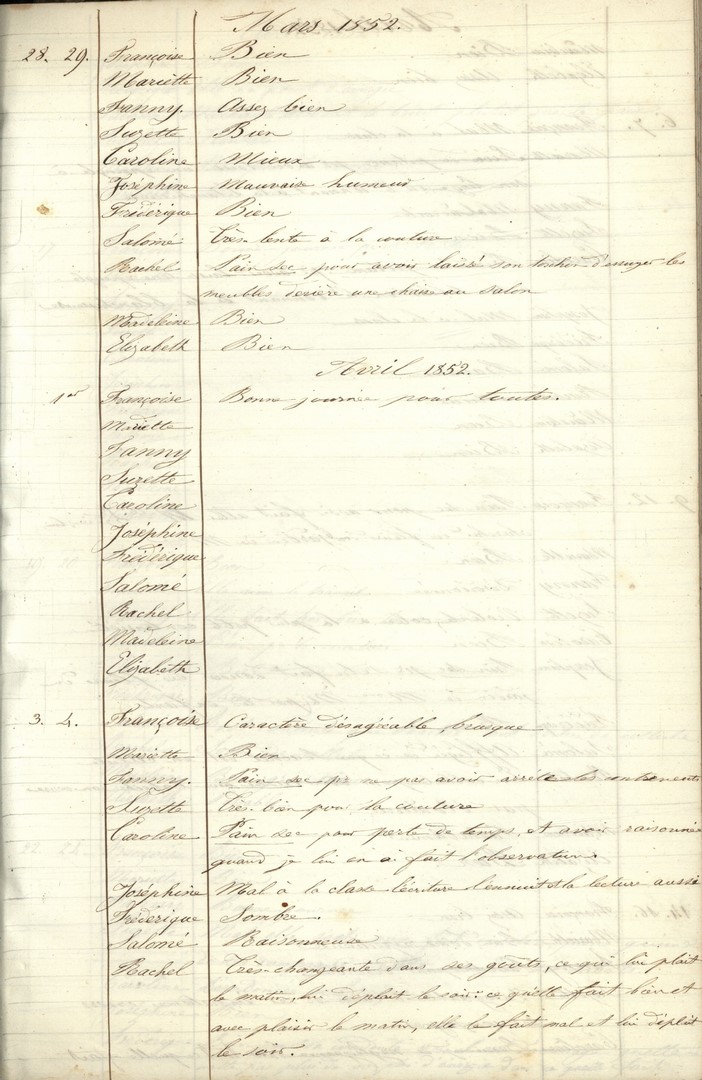 Mars 1852.
28. 29. Françoise Bien
Mariette Bien
Fanny. Assez bien
Suzette Bien
Caroline Mieux
Joséphine Mauvaise humeur
Frédérique Bien
Salomé Très lente à la couture
Rachel Pain sec pour avoir laissé son torchon d'essuyer les
meubles derière une chaise au salon
Madeleine Bien
Elizabeth Bien
Avril 1852.
1er Françoise Bonne journée pour toutes.
Mariette
Fanny
Suzette
Caroline
Joséphine
Frédérique
Salomé
Rachel
Madeleine
Elizabeth
3. 4. Françoise Caractère désagéable, brusque
Mariette Bien
Fanny. Pain sec pr ne pas avoir arrêté les
Suzette Très bien pour la couture
Caroline Pain sec pour perte de temps, et avoir raisonnée
quand je lui en ai fait l'observation.
Joséphine Mal à la classe l'écriture l'ennuit et la lecture aussi
Frédérique Sombre.
Salomé Raisonneuse
Rachel Très-changeante dans ses goûts, ce qui lui plait
le matin, lui déplait le soir: ce qu'elle fait bien et
avec plaisir le matin, elle le fait mal et lui déplait
le soir.